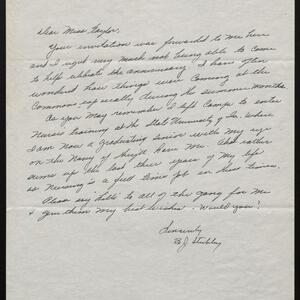 Dear Miss Taylor,
Your invitation was forward to me here
and I regret very much not being able to come
to help celebrate the anniversary. I have often
wondered how things were coming at the
Commons, especially during the summer months
As you may remember I left Camp to enter
Nurses training at the State University of Ia. where
I am now a graduating senior with my eye
on the Navy if they'll have me. That rather
sums up the last three years of my life
as Nursing is a full time job in these times.
Please say "hello" to all of the gang for me
& give them my best wishes - would you?
Sincerely
B J